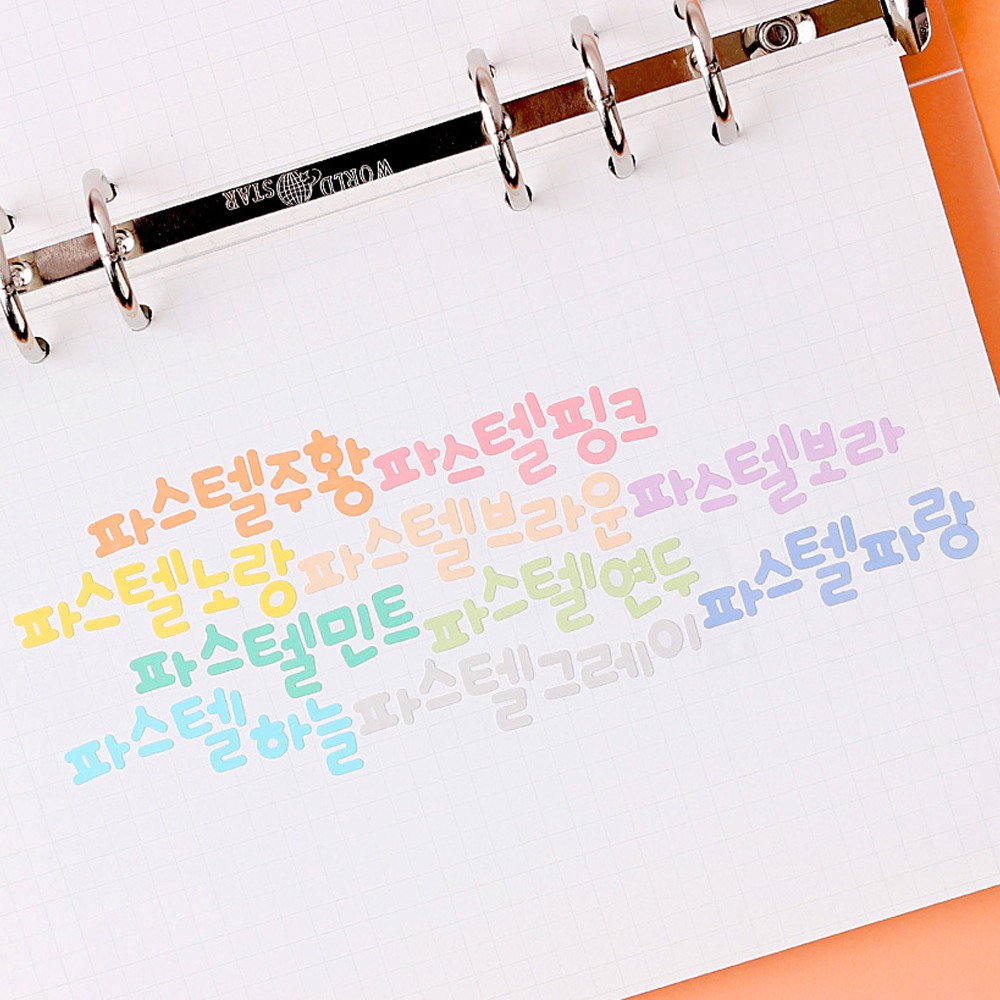 WORLD STAR
파스텔주황 파스텔핑크
파스텔노랑 파스텔브라운 파스텔보라
파스텔민트 파스텔연두 파스텔파랑
파스텔하늘 파스텔그레이